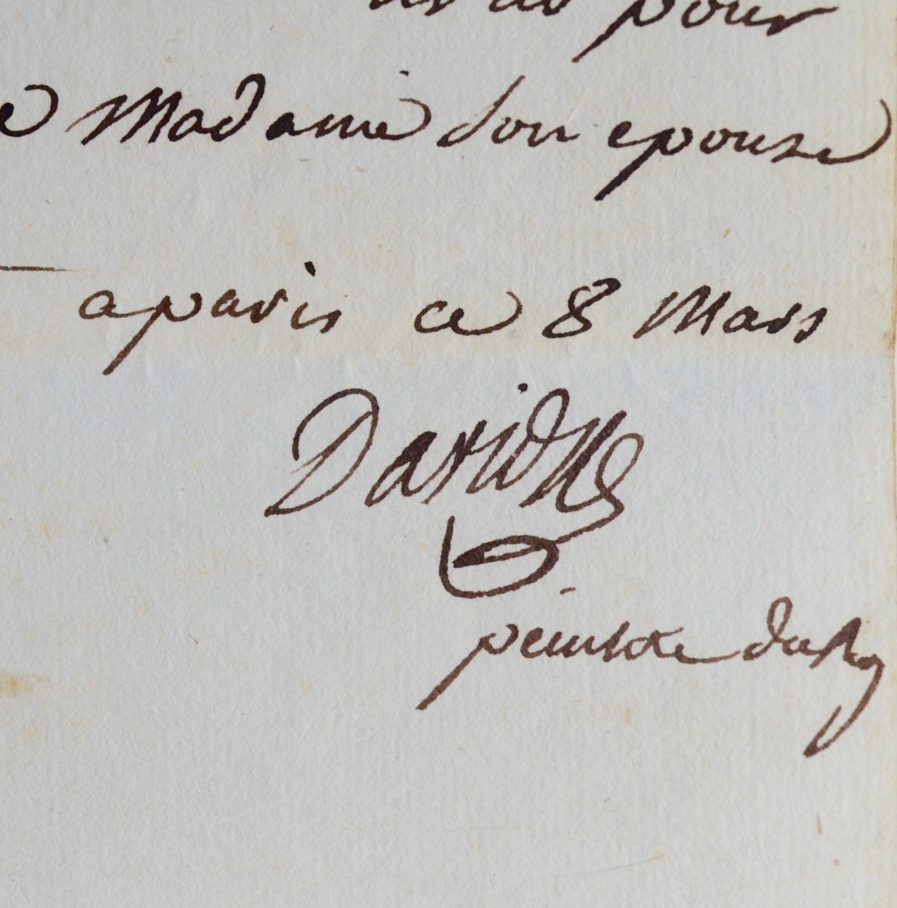 pour
Madame son epouse
a paris ce 8 Mars
David
peintre du Roy